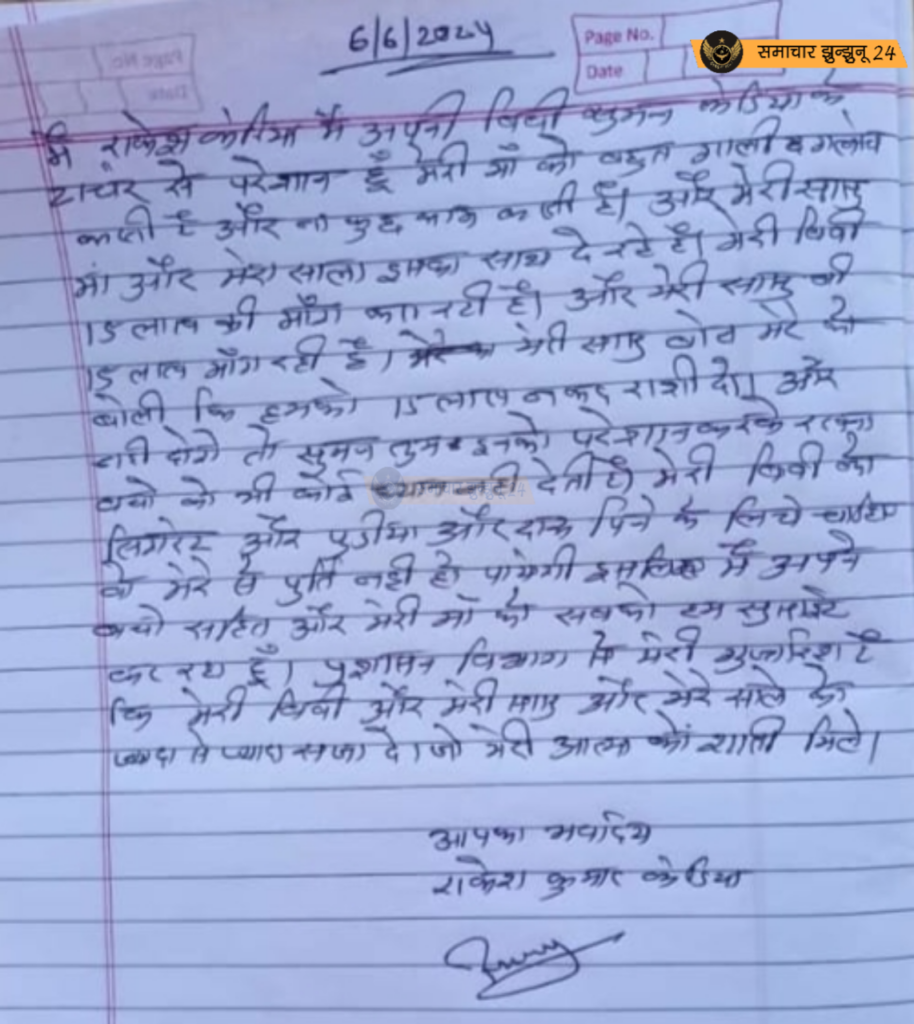 6/6/2024
Page No.
Date
समाचार झुन्झुनू 24
मैं राकेश केडिया मैं अपनी बिवी सुमन केडिया के
टाचर से परेशान हूँ मेरी माँ को बहुत गाली
करती है और ना कुछ काम करती है। और मेरी सासु
मां और मेरा साला इसका साथ दे रहे है। मेरी बिवी
15 लाख की माँग कर रही है। और मेरी सासु भी
15 लाख माँग रही है। मेरी सासु मेरे को
बोली कि हमको 15 लाख नकद राशी दो। और
नही दोगे तो सुमन तुम इनको परेशान करके रखना
बचो को भी कोई ध्यान नही देती है। मेरी बिवी को
सिगरेट और पुडीया और दारू पिने के लिये चाहिए
वो मेरे से पुर्ति नही हो पायेगी इसलिए मैं अपने
बचो सहित और मेरी माँ को सबको हम सुसाईट
कर रहा हूँ। प्रशासन विभाग से मेरी गुजारिश है
कि मेरी बिवी और मेरी सासु और मेरे साले को
ज्यादा से ज्यादा सजा दे। जो मेरी आत्मा को शाती मिले।
आपका
राकेश कुमार केडिया